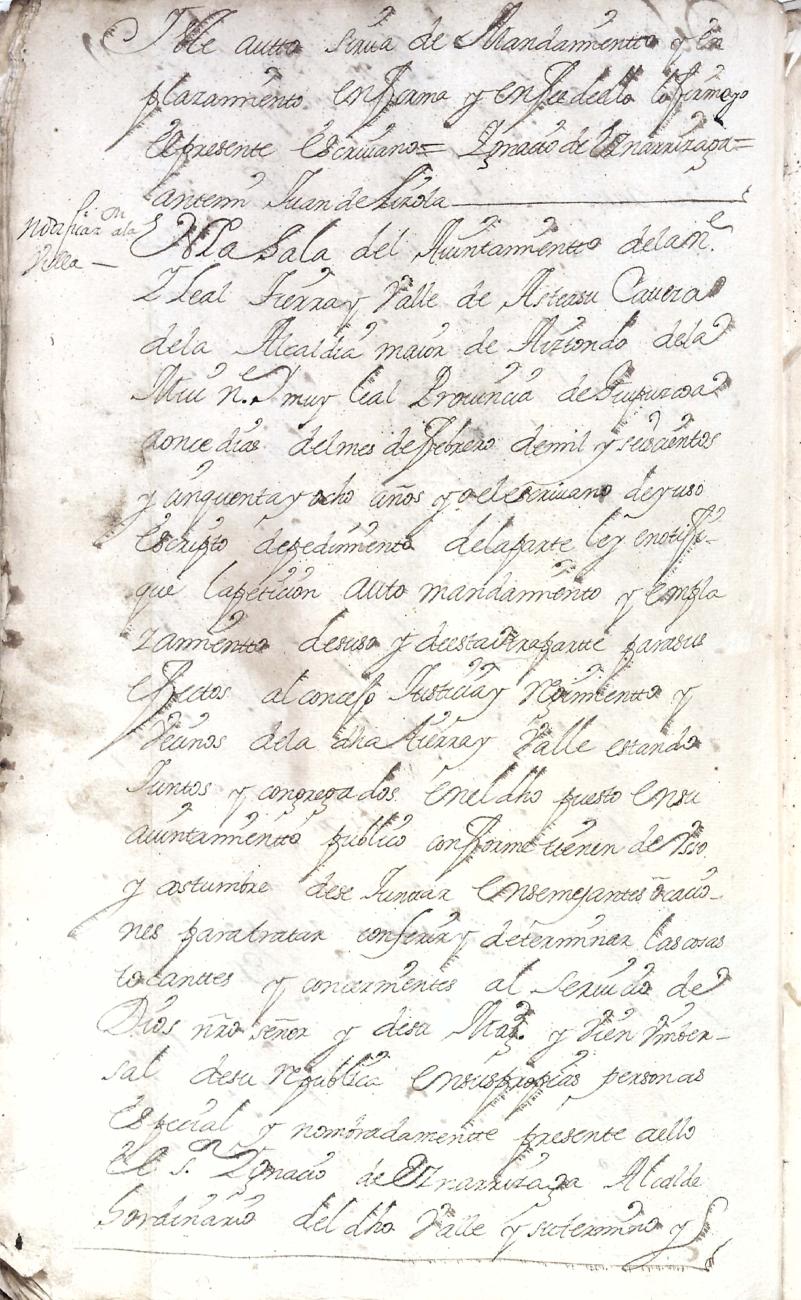 Este autto sirua de Mandamientto y en
plazamiento en forma y en fee de ello lo firmo yo
el presente escriuano= Ygnacio de Yznarrizaga=
antemi Juan de Lizola
Notificaz.on a la
Villa
EN La Sala del Aiuntamientto de la n.e
Y leal Tierra y Valle de Asteasu Cauera
de la Alcaldia maior de Aiztondo de la
Mui n.e Y muy leal Prouincia de Guipuzcoa
a once dias del mes de febrero de mil y seiscientos
y cinquenta y ocho años yo el escriuano de yuso
escripto de pedimiento de la parte ley e notifi-
que la peticion auto mandamiento y empla
zamientto desuso y de esta otra parte para sus
efectos al concejo Justicia y Reximientto y
Vecinos de la dha tierra y Valle estando
Juntos y congregados en el dho puesto en su
aiuntamiento publico conforme tienen de Vso
y costumbre de se Juntar en semejantes ocacio-
nes para tratar conferir y determinar las cosas
tocanttes y concernientes al seruicio de
Dios nro señor y de su Mag. y Vien Vniber-
sal de su republica en sus propias personas
especial y nombradamente presente a ello
El S.r Ygnacio de Yznarrizaga Alcalde
hordinario del dho Valle y su termino y